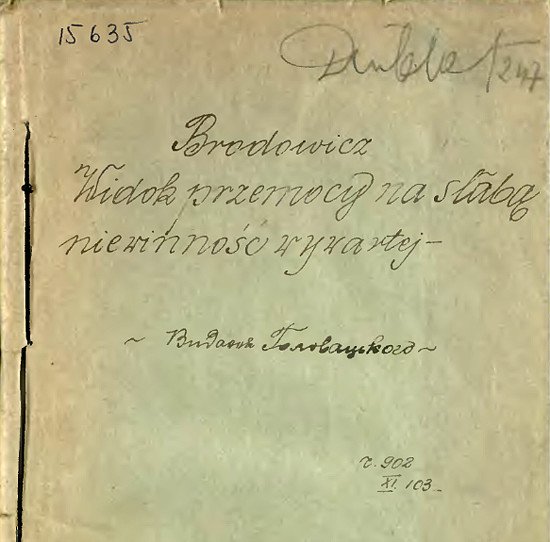 15635
Dublet
Brodowicz
Widok przemocy na słabą
niewinność wywartej —
~ Головацького ~
r. 902
XI. 103